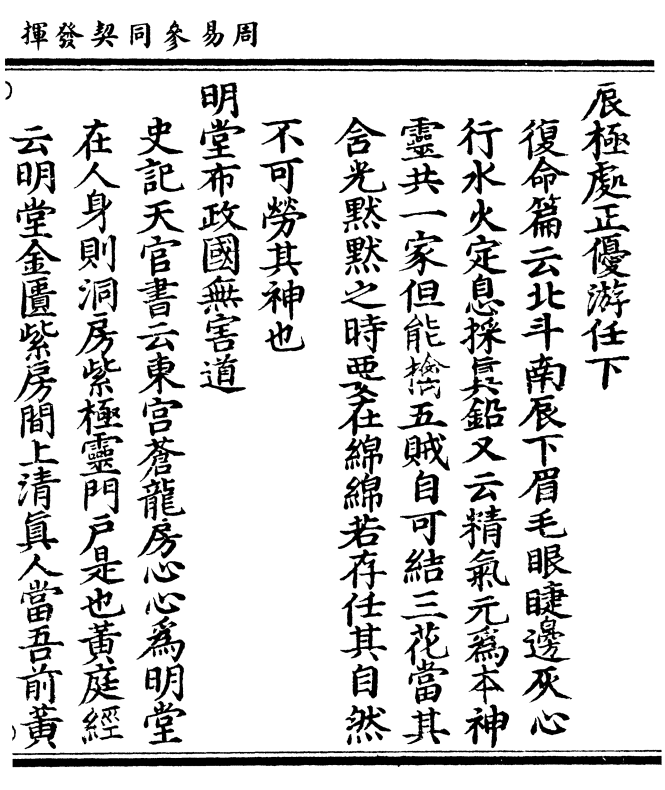 周易參同契發揮
辰極處正優游任下
復命篇云北斗南辰下眉毛眼睫邊灰心
行水火定息採眞鉛又云精氣元爲本神
靈共一家但能擒五賊自可結三花當其
含光默默之時要在綿綿若存任其自然
不可勞其神也
明堂布政國無害道
史記天官書云東宫蒼龍房心心爲明堂
在人身則洞房紫極靈門戸是也黃庭經
云明堂金匱紫房間上清眞人當吾前黃